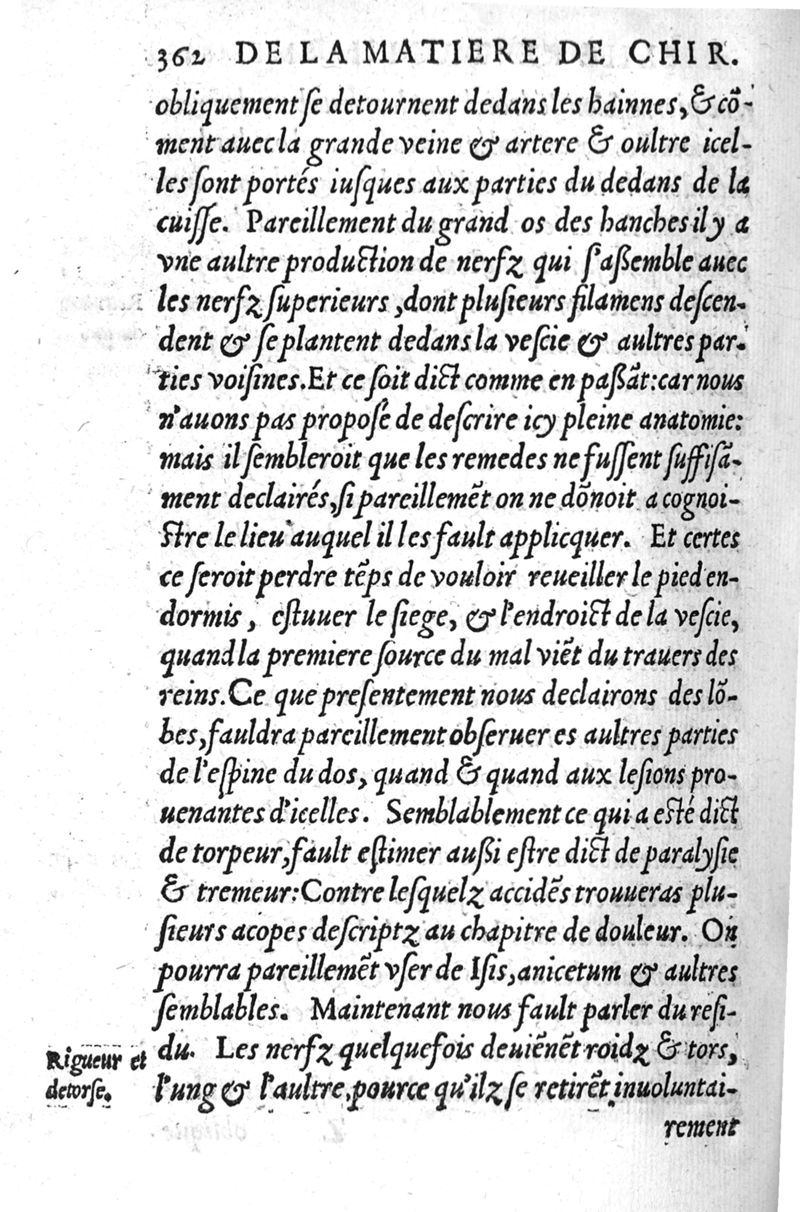 362 DE LA MATIERE DE CHIR.
obliquement ſe detournent dedans les hainnes, & cõ-
ment auec la grande veine & artere & oultre icel-
les ſont portés iuſques aux parties du dedans de la
cuiſſe. Pareillement du grand os des hanches il y a
vne aultre production de nerfz qui ſ'aßemble auec
les nerfz ſuperieurs, dont pluſieurs filamens deſcen-
dent & ſe plantent dedans la veſcie & aultres par-
ties voiſines. Et ce ſoit dict comme en paßãt: car nous
n'auons pas propoſé de deſcrire icy pleine anatomie:
mais il ſembleroit que les remedes ne fuſſent ſuffiſã-
ment declairés, ſi pareillemẽt on ne dõnoit a cognoi-
ſtre le lieu auquel il les fault applicquer. Et certes
ce ſeroit perdre tẽps de vouloir reueiller le pied en-
dormis, eſtuuer le ſiege, & l'endroict de la veſcie,
quand la premiere ſource du mal viẽt du trauers des
reins. Ce que preſentement nous declairons des lõ-
bes, fauldra pareillement obſeruer es aultres parties
de l'eſpine du dos, quand & quand aux leſions pro-
uenantes d'icelles. Semblablement ce qui a eſté dict
de torpeur, fault eſtimer außi eſtre dict de paralyſie
& tremeur: Contre leſquelz accidẽs trouueras plu-
ſieurs acopes deſcriptz au chapitre de douleur. On
pourra pareillemẽt vſer de Iſis, anicetum & aultres
ſemblables. Maintenant nous fault parler du reſi-
du. Les nerfz quelquefois deuiẽnẽt roidz & tors,
l'ung & l'aultre, pource qu'ilz ſe retirẽt inuoluntai-
rement
Rigueur et
detorſe.